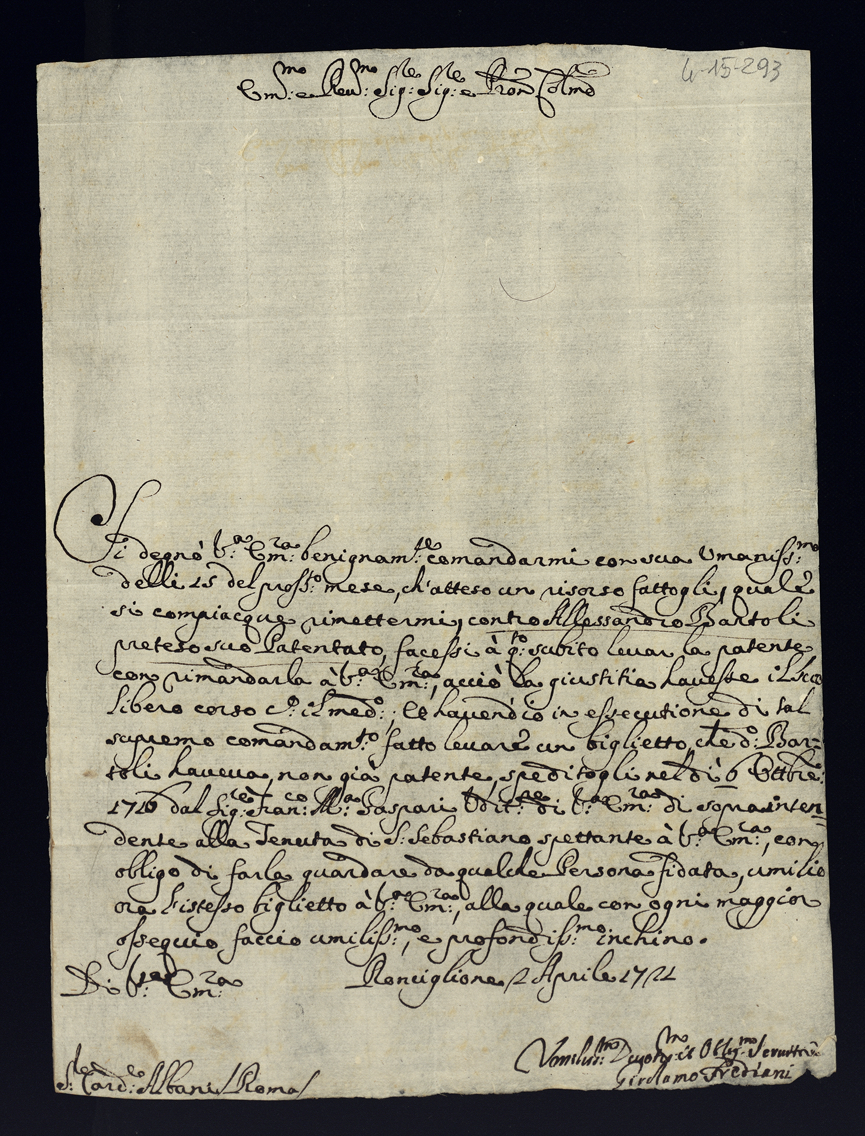 4-15-293
Em:mo e Rev:mo Sig:re Sig:re e Pron Colmo
Si degnò V:a Em:ra benignam:te comandarmi con sua Umaniss:mo
delli 15 del pross:o mese, ch'atteso un risorso fattogli, quale
si compiacque rimettermi, contro Allessandro Bartoli
preteso suo Patentato, facessi à q:to subito levar la patente
con rimandarla à V:a Em:ra, acciò la giustitia havesse il suo
libero corso c:o il med:o; Et havend'io in essecutione di tal
supremo comandam:to fatto levare un biglietto, che d:o Bar-
toli haveva, non già patente, speditogli nel dì 6 Ottbre:
1716 dal Sig:re Fran:co M:a Gaspari Udit:re di V:a Em:ra di soprainten-
dente alla Tenuta di S: Sebastiano spettante à V:a Em:ra, con
obligo di farla guardare da qualche Persona fidata, umilio
ora l'istesso biglietto à V:a Em:ra, alla quale con ogni maggior
ossequio faccio umiliss:mo, e profondiss:mo inchino.
Di V:ra Em:ra Ronciglione 2 Aprile 1721
Umiliss:mo Devotis:mo et Oblig:mo Servitore
Girolamo Frediani
S:r Card:le Albani / Roma /